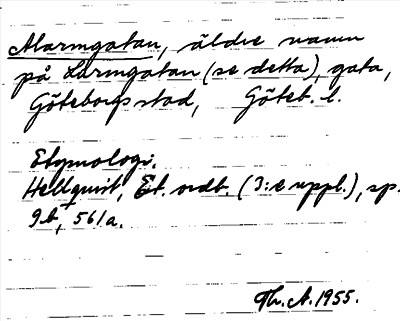 Alarmgatan, äldre namn
på Larmgatan (se detta), gata,
Göteborgs stad, Göteb. l.
Etymologi.
Hellquist, Et. ordb. (3:e uppl.), sp.
9b, 561a.
Th. A. 1955.